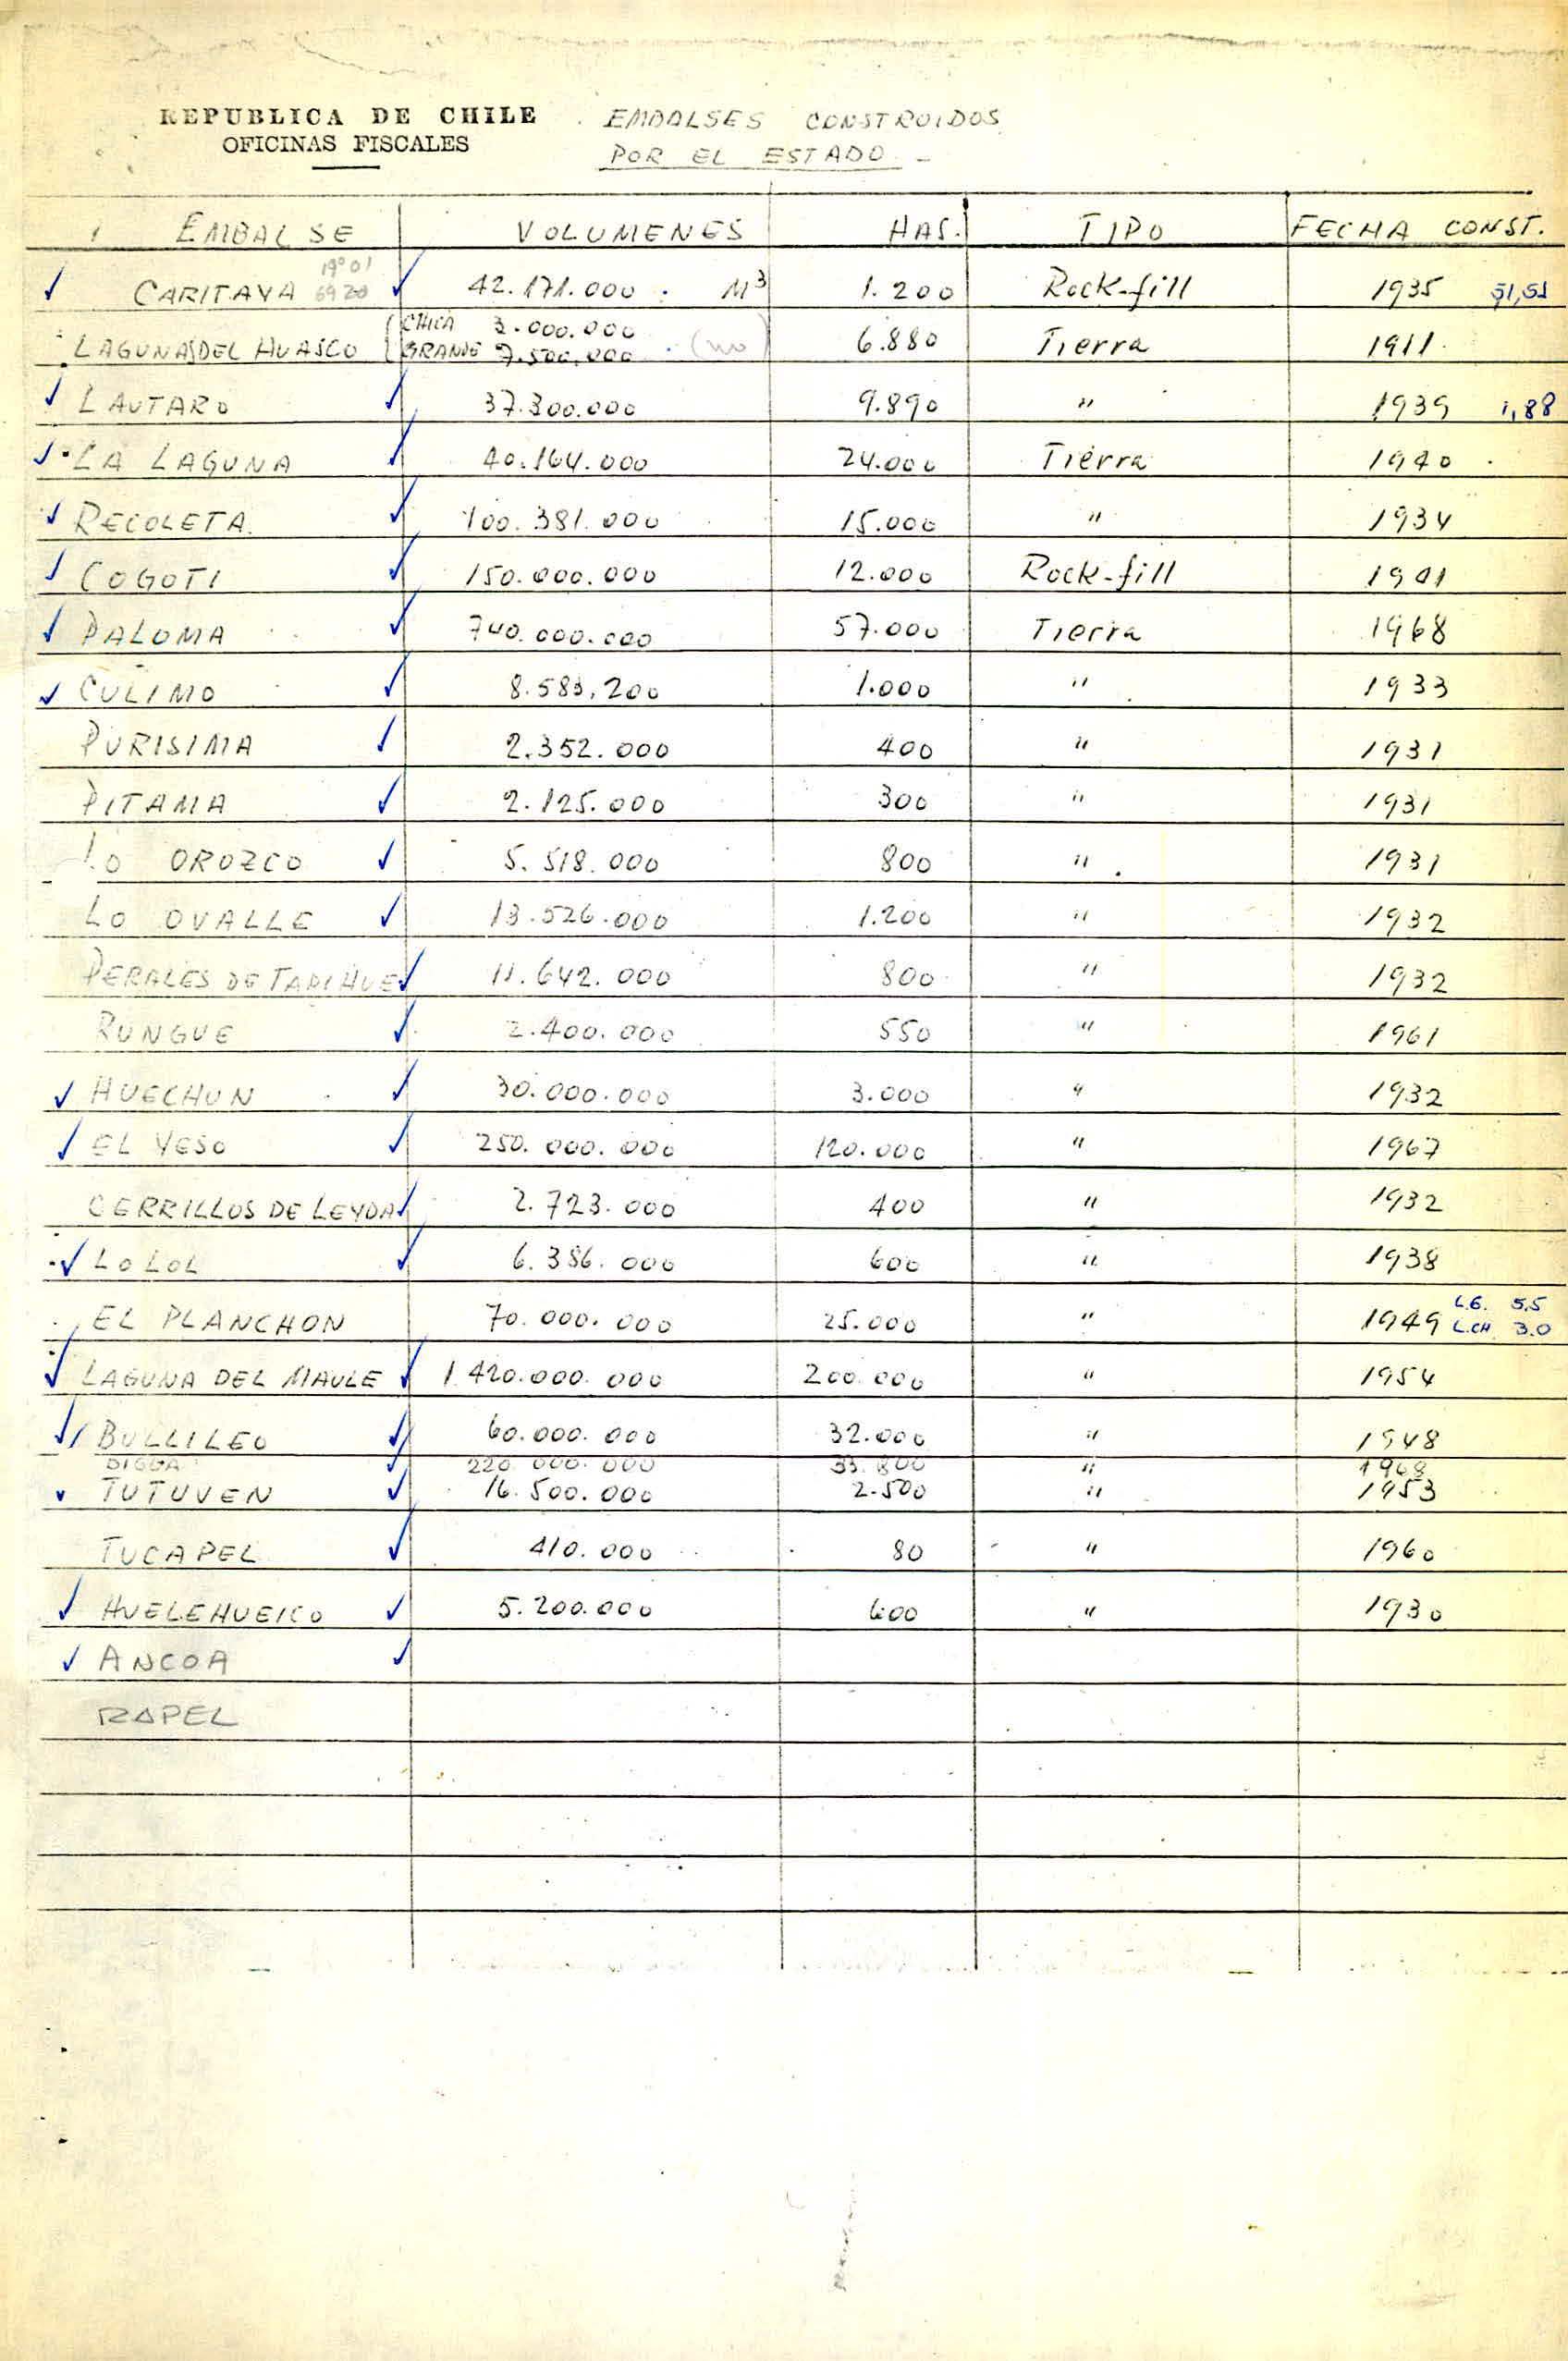 REPUBLICA DE CHILE
OFICINAS FISCALES
EMBALSES CONSTRUIDOS
POR EL ESTADO. -
EMBALSE VOLUMENES HAS. TIPO FECHA CONST.
✓ CARITAYA 19°01 6920 ✓ 42.171.000. M³ 1.200 Rock-fill 1935 51,51
LAGUNAS DEL HUASCO (CHICA 3.000.000 GRANDE 7.500.000 . (no) 6.880 Tierra 1911.
✓ LAUTARO ✓ 37.300.000 9.890 " 1939 1,88
✓ LA LAGUNA ✓ 40.164.000 24.000 Tierra 1940
✓ RECOLETA ✓ 100.381.000 15.000 " 1934
✓ COGOTI ✓ 150.000.000 12.000 Rock-fill
✓ PALOMA ✓ 740.000.000 57.000 Tierra 1968
✓ CULIMO ✓ 8.583.200 1.000 " 1933
PURISIMA ✓ 2.352.000 400 " 1931
PITAMA ✓ 2.125.000 300 " 1931
LO OROZCO ✓ 5.518.000 800 " 1931
LO OVALLE ✓ 13.526.000 1.200 " 1932
PERALES DE TAPIHUE ✓ 11.642.000 800 " 1932
RUNGUE ✓ 2.400.000 550 " 1961
✓ HUECHUN ✓ 30.000.000 3.000 " 1932
✓ EL YESO ✓ 250.000.000 120.000 " 1967
CERRILLOS DE LEYDA ✓ 2.723.000 400 " 1932
✓ LOLOL ✓ 6.386.000 600 " 1938
EL PLANCHON 70.000.000 25.000 " 1949 L.G. 5.5 L.CH 3.0
✓ LAGUNA DEL MAULE ✓ 1.420.000.000 200.000 " 1954
✓ BULLILEO ✓ 60.000.000 32.000 " 1948
DIGUA ✓ 220.000.000 33.800 " 1968
✓ TUTUVEN ✓ 16.500.000 2.500 " 1953
TUCAPEL ✓ 410.000 80 " 1960
✓ HUELEHUEICO ✓ 5.200.000 600 " 1930
✓ ANCOA ✓
RAPEL